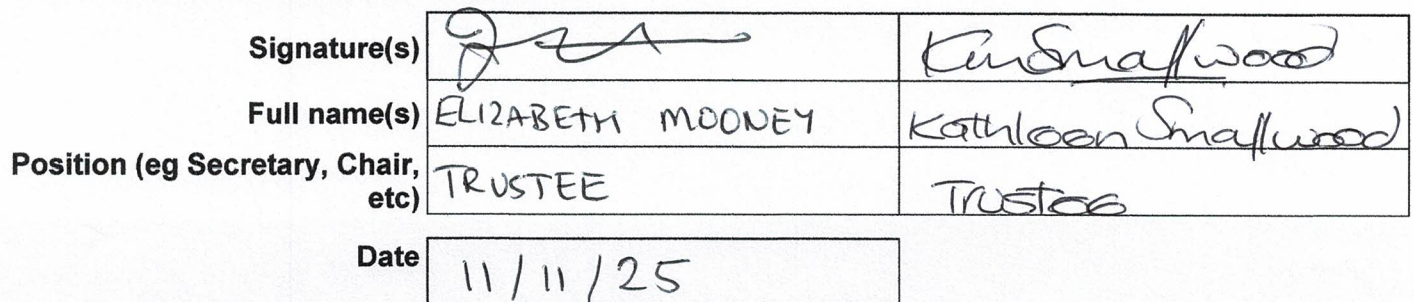 Signature(s) KmSmallwood
Full name(s) ELIZABETH MOONEY Kathleen Smallwood
Position (eg Secretary, Chair,
etc) TRUSTEE Trustee
Date 11/11/25